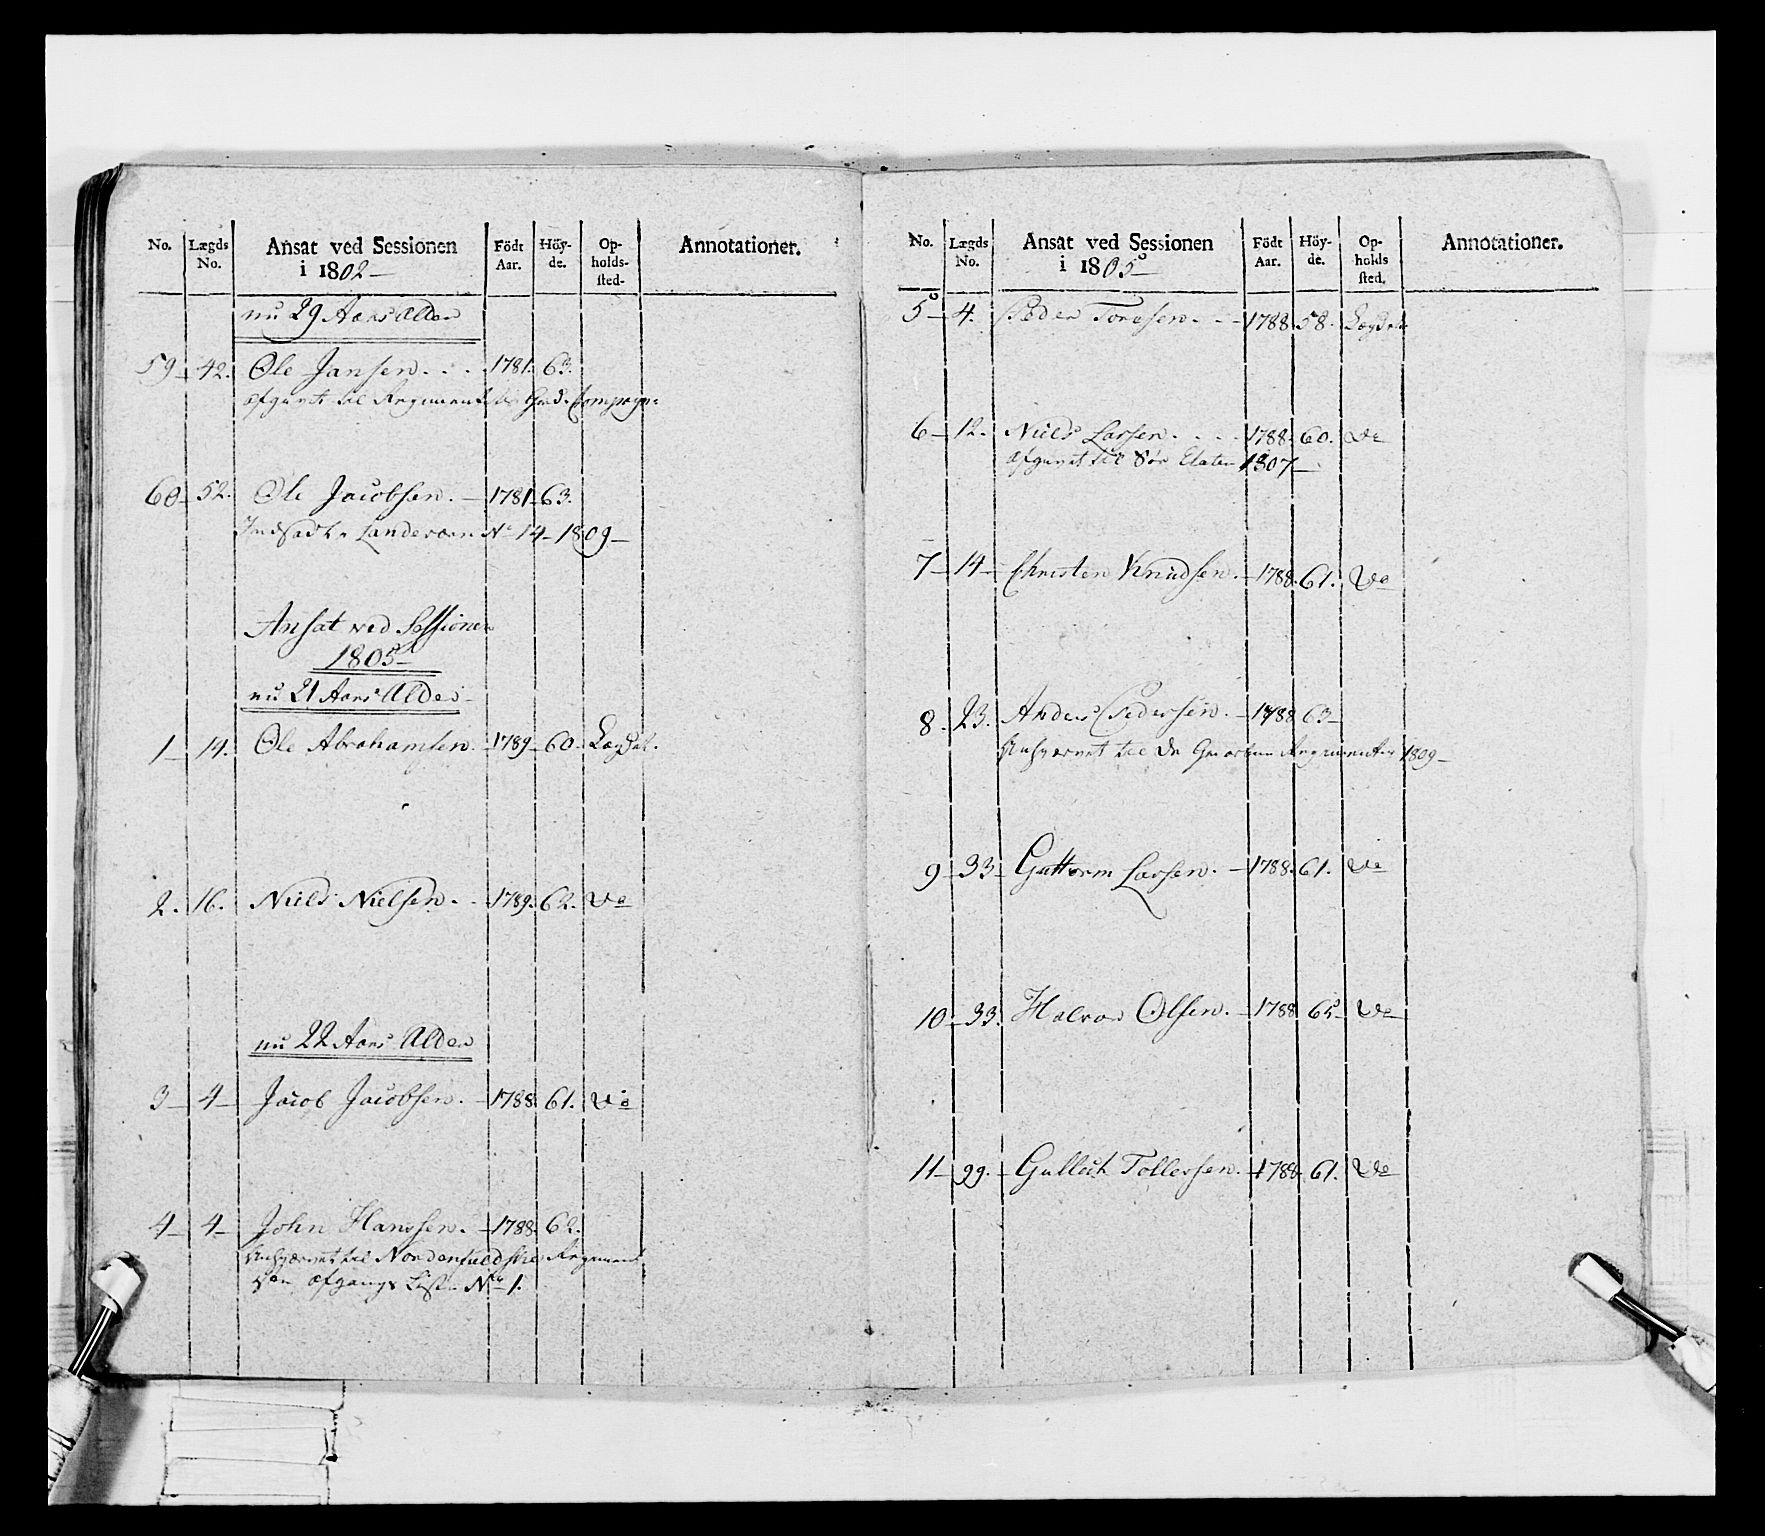 No. Lægds No. Ansat ved Sessionen i 1802 Födt Aar. Höyde. Opholdssted. Annotationer.
nu 29 Aars Alder
59 42. Ole Jansen 1781. 63.
afgaaet til Regimentets Compagn:
60 52. Ole Jacobsen. 1781. 63.
Indsadt Landeværn No 14 1809
Ansat ved Sessionen
1805
nu 21 Aars Alder
1 14. Ole Abrahamsen. 1789 60. Lægdet.
2. 16. Niels Nielsen. 1789. 62. Do
nu 22 Aars Alder
3 4 Jacob Jacobsen. 1788 61. Do
4 4 John Hanssen. 1788. 62.
til Nordenfieldske Regiment
afgangs Liste No 1.
No. Lægds No. Ansat ved Sessionen i 1805 Födt Aar. Höyde. Opholds sted. Annotationer.
5 4. Peder Toresen. 1788 58. Lægdet
6 12. Niels Larsen. 1788. 60. Do
afgaaet til Søe Etaten 1807
7 14 Christen Knudsen. 1788. 61. Do
8. 23. Anders Pedersen. 1788 63
til de Regimenter 1809
9 33 Guttorm Larsen. 1788. 61. Do
10 33. Halvor Olsen. 1788 65 Do
11 39. Gulleik Tollefsen. 1788 61. Do